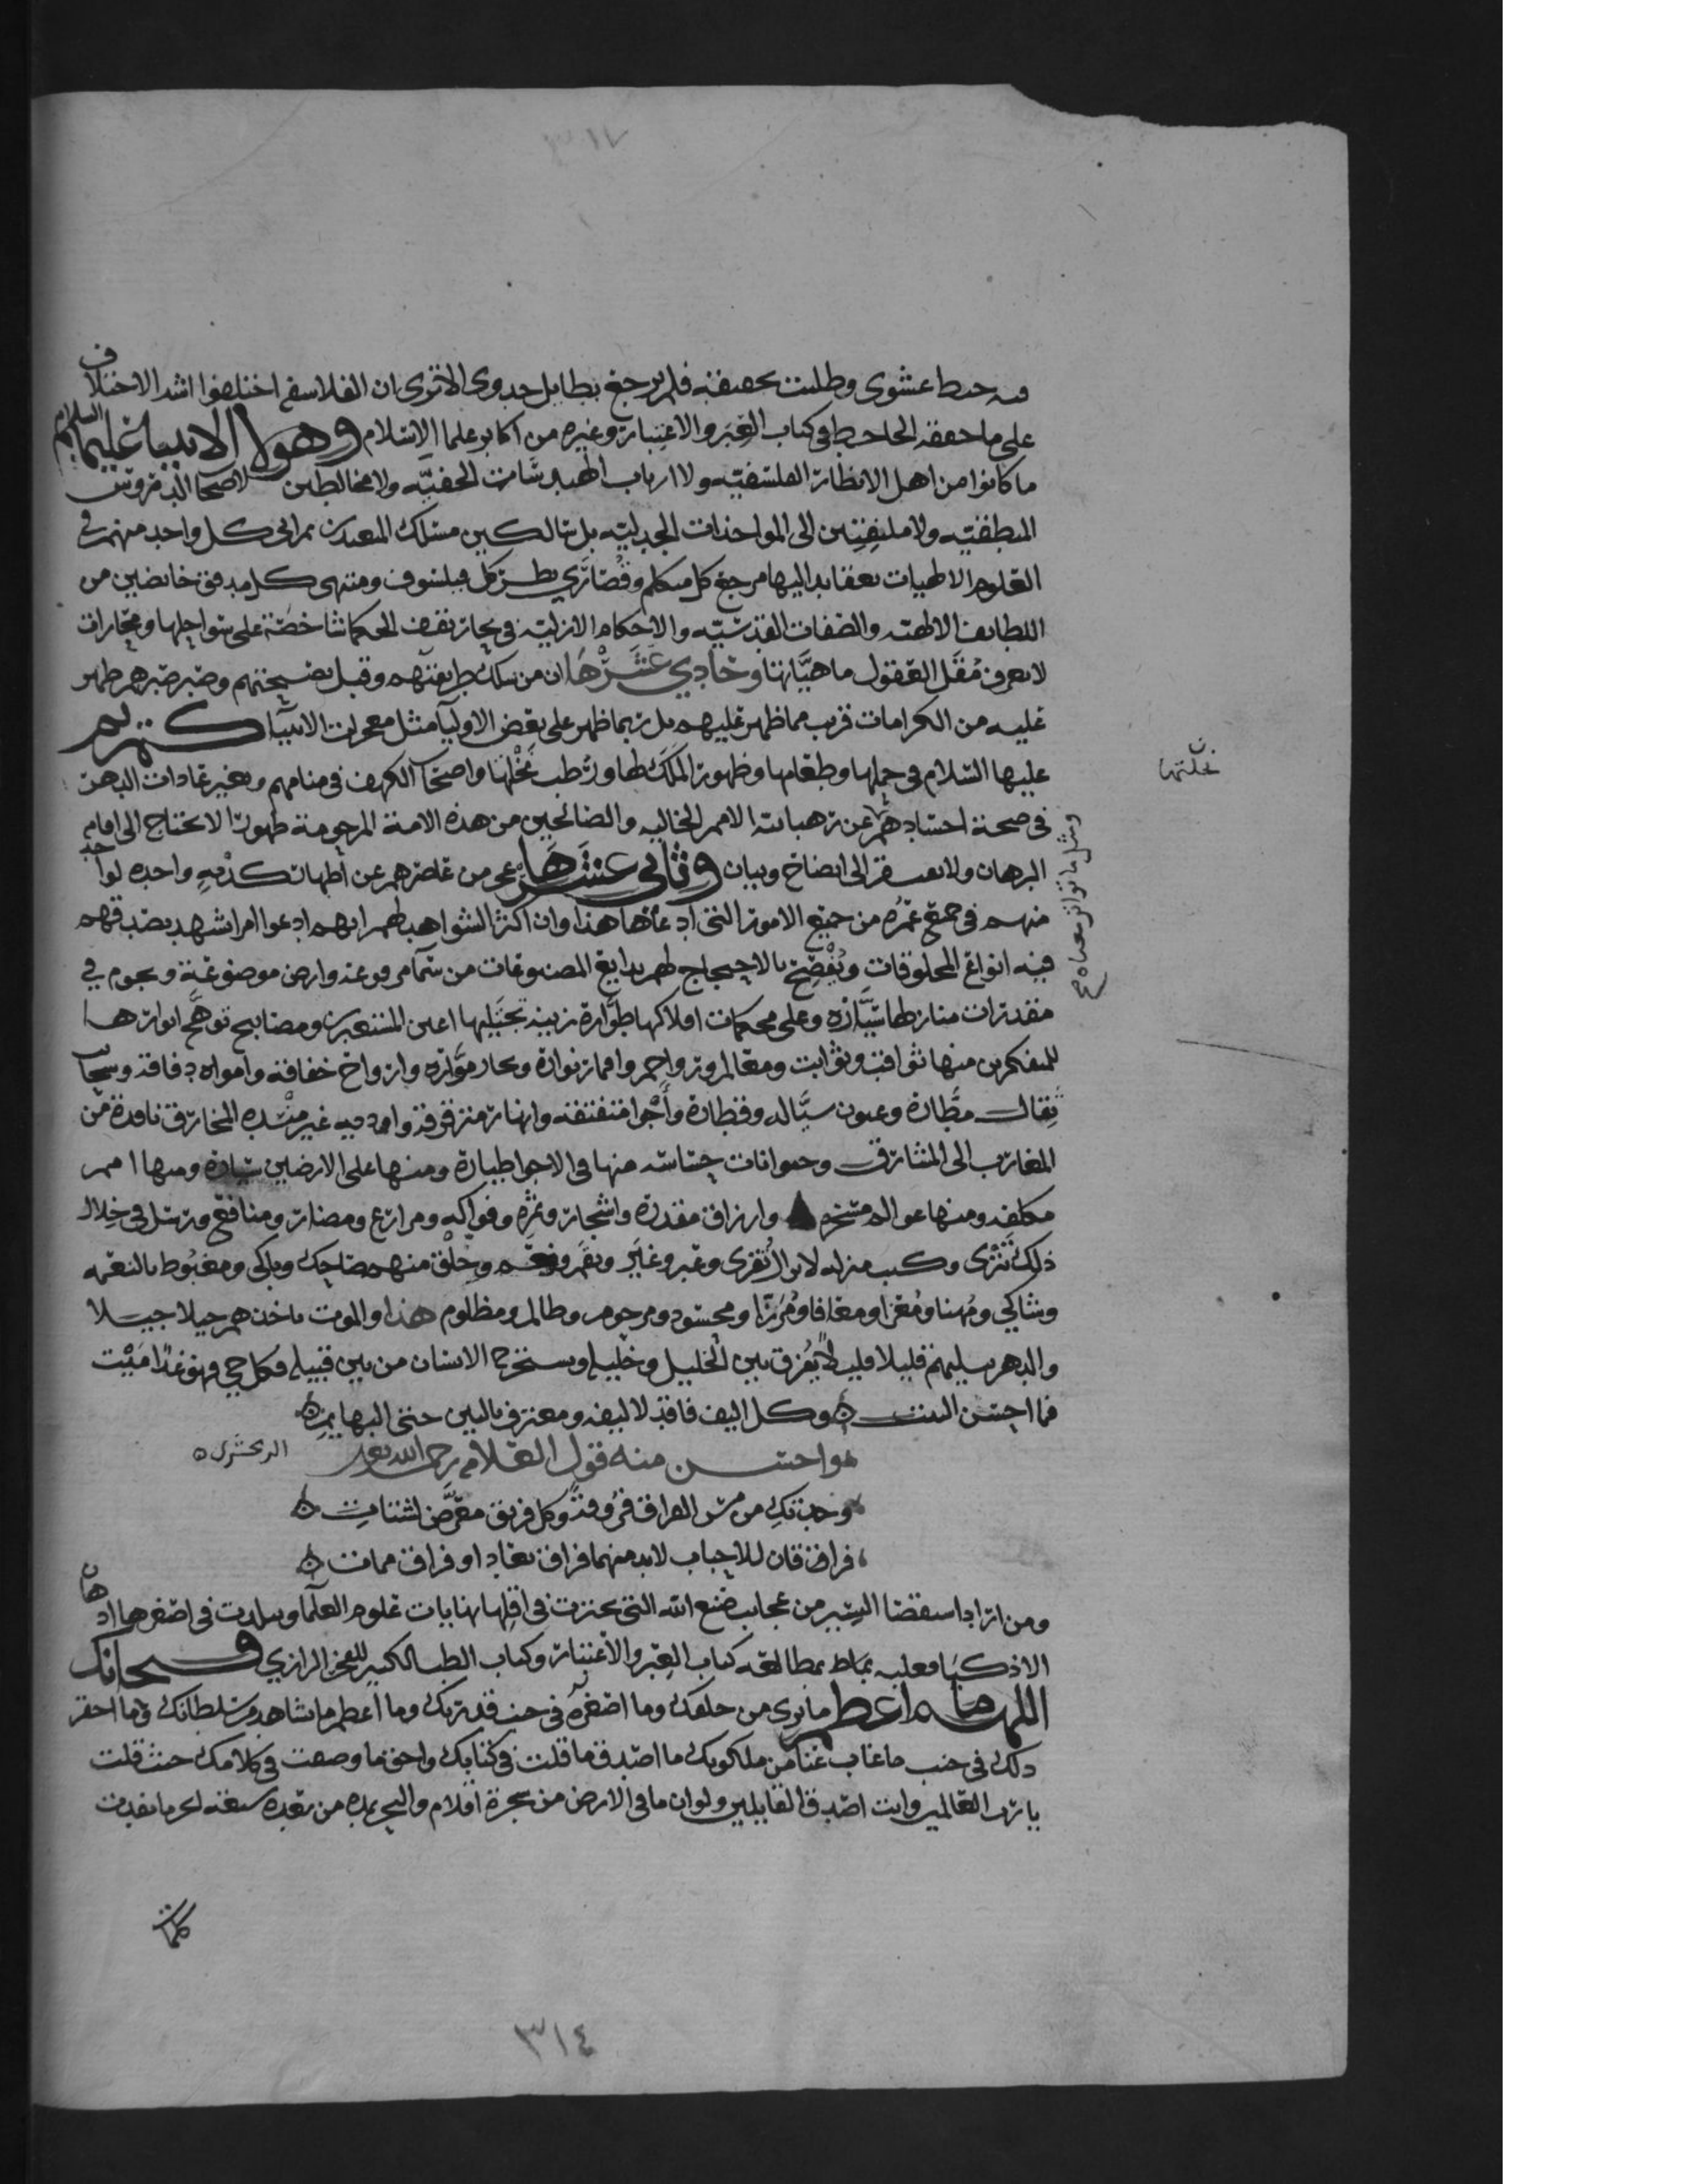 فيه خبط عشوى وطلبت تحقيقه فلم ترجع بطايل جدوى الاترى ان الفلاسفه اختلفوا اشد الاختلاف
على ما حققه الجاحظ في كتاب العبر والاعتبار وغيره من اكابر علما الاسلام وهولا الانبيا عليهم السلام
ما كانوا من اهل الانظار الفلسفيه ولا ارباب الخفيه ولا مخالطين لاصحاب الدروس
المنطقيه ولا ملتفتين الى المواخذات الجدليه بل سالكين مسلك المتعبدين ثم اتى كل واحد منهم في
العلوم الالهيات بعقايد اليها مرجع كل متكلم وقصارى نظر كل فيلسوف ومنتهى كل مدقق خايضين من
اللطايف الالهيه والصفات القدسيه والاحكام الازليه في بحار تقف الحكما شاخصة على سواحلها ومحارات
لا تعرف مقل العقول ماهياتها وحادي عشرها ان من سلك طريقتهم وقبل نصيحتهم وصبر صبرهم ظهر
عليه من الكرامات قريب مما ظهر عليهم بل ربما ظهر على بعض الاوليا مثل معجزات الانبيا كمريم
عليها السلام في حملها وطعامها وظهور الملك لها ورطب نخلتها واصحاب الكهف في منامهم وتغيير عادات الدهر
في صحة اجسادهم عن رهبانية الامم الخاليه والصالحين من هذه الامة المرحومة ظهورا لا يحتاج الى اقامة
البرهان ولا يفتقر الى ايضاح وبيان وثاني عشرها عجز من عاصرهم عن اظهار كذبه واحده لواحد
منهم في جميع عمره من جميع الامور التي ادعاها هذا وان اكثر الشواهد لهم انهم ادعوا امرا تشهد بصدقهم
فيه انواع المخلوقات وتفصح بالاحتجاج لهم بدايع المصنوعات من سما مرفوعه وارض موضوعة ونجوم في
مقدرات منازلها سيارة وعلى محكمات افلاكها دوارة زينة تجتليها اعين المستعبرين ومصابيح توهج انوارها
للمتفكرين منها ثواقب وثوابت ومعالم ورواجم واقمار نوارة وبحار موارة وارواح خفاقة وامواه دفاقة وسحاب
ثقال مطارة وعيون سياله وقطارة واجوا متفتقه وانهار مترقرقة غير منسده المخارق نافذة من
المغارب الى المشارق وحيوانات حساسه منها في الاجوا طيارة ومنها على الارضين سيارة ومنها امم
مكلفه ومنها عوالم مسخره وارزاق مقدرة واشجار وثمره وفواكه ومراتع ومضار ومنافع ورسل في خلال
ذلك تترى وكتب منزله لا تزال تقرى وعبر وغير ونقم ونعم وخلق منهم ضاحك وباكي ومغبوط بالنعمه
وشاكي ومهنا ومعزا ومعافا ومرزا ومحسود ومرحوم وظالم ومظلوم هذا والموت ياخذهم جيلا جيلا
والدهر يسليهم قليلا قليلا يفرق بين الخليل وخليله ويستخرج الانسان من بين قبيله فكل حي فهو غدا ميت
فما احسن البيت وكل اليف فاقد لاليفه ومعترف بالبين حتى البهايم
واحسن منه قول العلامه رحمه الله تعالى الزمخشري
وجدتك من مس الفراق فروقة وكل فريق معرض لشتات
فراقان للاحباب لا بد منهما فراق بعاد او فراق ممات
ومن اراد استقصا اليسير من عجايب صنع الله التي عجزت في اقلها نهايات علوم العلما وتبلدت في اصغرها اذهان
الاذكيا فعليه بمطالعة كتاب العبر والاعتبار وكتاب الطب الكبير للفخر الرازي فسبحانك
اللهم ما اعظم ما نرى من خلقك وما اصغره في جنب قدرتك وما اعظم ما نشاهد من سلطانك وما احقر
ذلك في جنب ما غاب عنا من ملكوتك ما اصدق ما قلت في كتابك واحق ما وصفت في كلامك حيث قلت
يا رب العالمين وانت اصدق القايلين ولو ان ما في الارض من شجرة اقلام والبحر يمده من بعده سبعة ابحر ما نفدت
كلمات
نخلتها
٣١٤